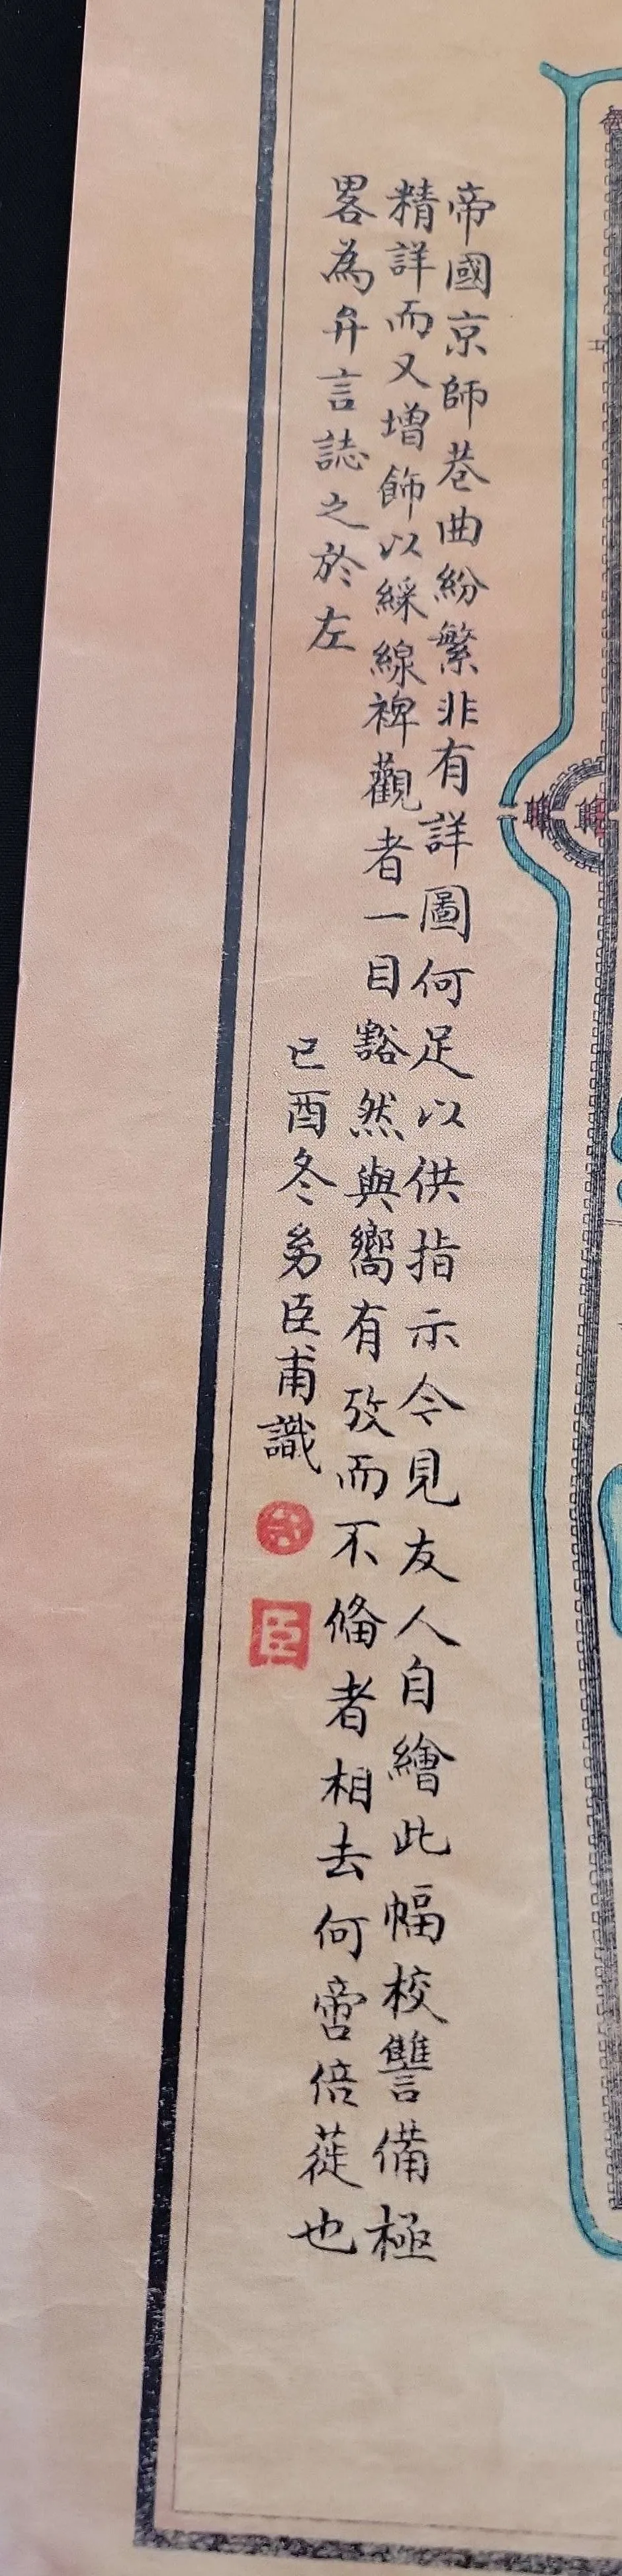 帝國京師巷曲紛繁非有詳圖何足以供指示今見友人自繪此幅校讐備極
精詳而又增飾以綵線裨觀者一目豁然與嚮有攷而不俻者相去何啻倍蓰也
畧為弁言誌之於左
己酉冬 臣甫識
臣